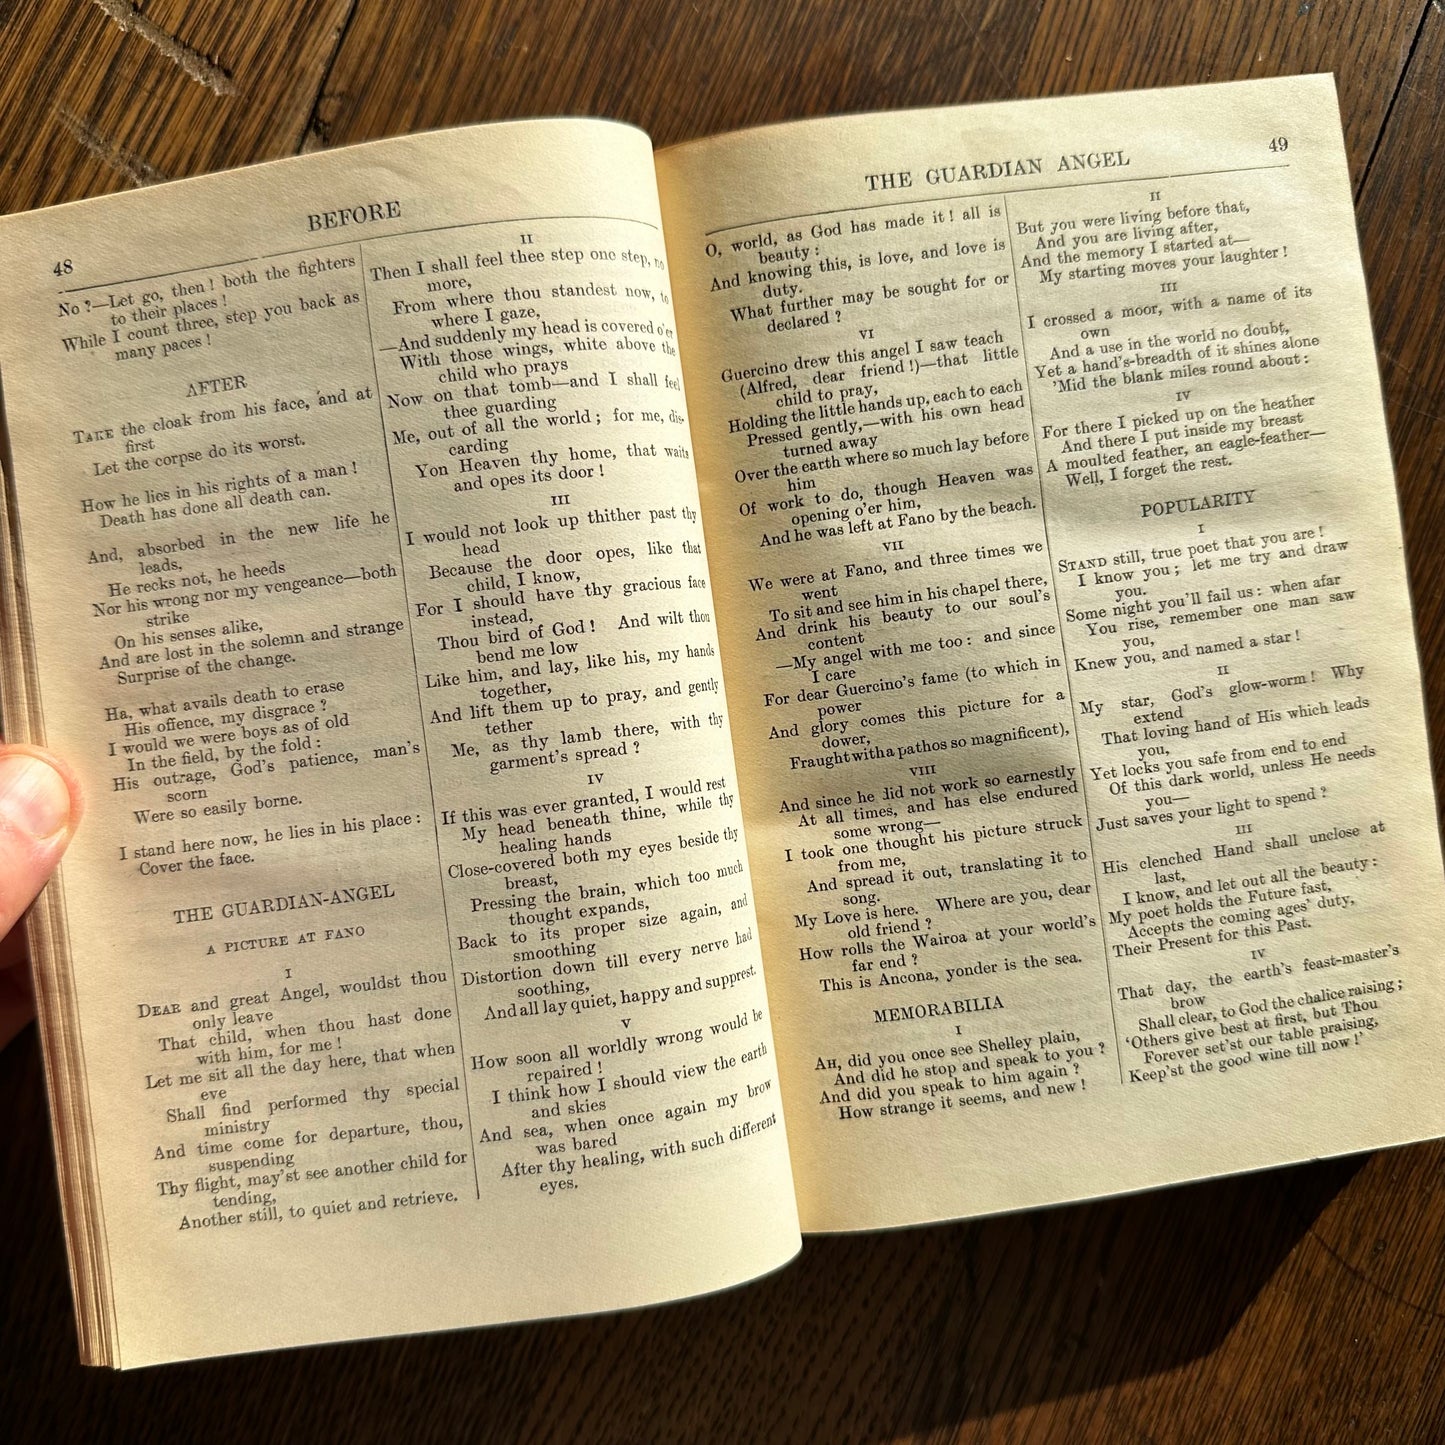 48
BEFORE
No ?—Let go, then ! both the fighters
to their places !
While I count three, step you back as
many paces !
AFTER
TAKE the cloak from his face, and at
first
Let the corpse do its worst.
How he lies in his rights of a man !
Death has done all death can.
And, absorbed in the new life he
leads,
He recks not, he heeds
Nor his wrong nor my vengeance—both
strike
On his senses alike,
And are lost in the solemn and strange
Surprise of the change.
Ha, what avails death to erase
His offence, my disgrace ?
I would we were boys as of old
In the field, by the fold :
His outrage, God's patience, man's
scorn
Were so easily borne.
I stand here now, he lies in his place :
Cover the face.
THE GUARDIAN-ANGEL
A PICTURE AT FANO
I
DEAR and great Angel, wouldst thou
only leave
That child, when thou hast done
with him, for me !
Let me sit all the day here, that when
eve
Shall find performed thy special
ministry
And time come for departure, thou,
suspending
Thy flight, may'st see another child for
tending,
Another still, to quiet and retrieve.
II
Then I shall feel thee step one step, no
more,
From where thou standest now, to
where I gaze,
—And suddenly my head is covered o'er
With those wings, white above the
child who prays
Now on that tomb—and I shall feel
thee guarding
Me, out of all the world ; for me, dis-
carding
Yon Heaven thy home, that waits
and opes its door !
III
I would not look up thither past thy
head
Because the door opes, like that
child, I know,
For I should have thy gracious face
instead,
Thou bird of God ! And wilt thou
bend me low
Like him, and lay, like his, my hands
together,
And lift them up to pray, and gently
tether
Me, as thy lamb there, with thy
garment's spread ?
IV
If this was ever granted, I would rest
My head beneath thine, while thy
healing hands
Close-covered both my eyes beside thy
breast,
Pressing the brain, which too much
thought expands,
Back to its proper size again, and
smoothing
Distortion down till every nerve had
soothing,
And all lay quiet, happy and supprest.
V
How soon all worldly wrong would be
repaired !
I think how I should view the earth
and skies
And sea, when once again my brow
was bared
After thy healing, with such different
eyes.
THE GUARDIAN ANGEL
49
O, world, as God has made it ! all is
beauty :
And knowing this, is love, and love is
duty.
What further may be sought for or
declared ?
VI
Guercino drew this angel I saw teach
(Alfred, dear friend !)—that little
child to pray,
Holding the little hands up, each to each
Pressed gently,—with his own head
turned away
Over the earth where so much lay before
him
Of work to do, though Heaven was
opening o'er him,
And he was left at Fano by the beach.
VII
We were at Fano, and three times we
went
To sit and see him in his chapel there,
And drink his beauty to our soul's
content
—My angel with me too : and since
I care
For dear Guercino's fame (to which in
power
And glory comes this picture for a
dower,
Fraught with a pathos so magnificent),
VIII
And since he did not work so earnestly
At all times, and has else endured
some wrong—
I took one thought his picture struck
from me,
And spread it out, translating it to
song.
My Love is here. Where are you, dear
old friend ?
How rolls the Wairoa at your world's
far end ?
This is Ancona, yonder is the sea.
MEMORABILIA
I
AH, did you once see Shelley plain,
And did he stop and speak to you ?
And did you speak to him again ?
How strange it seems, and new !
II
But you were living before that,
And you are living after,
And the memory I started at—
My starting moves your laughter !
III
I crossed a moor, with a name of its
own
And a use in the world no doubt,
Yet a hand's-breadth of it shines alone
'Mid the blank miles round about :
IV
For there I picked up on the heather
And there I put inside my breast
A moulted feather, an eagle-feather—
Well, I forget the rest.
POPULARITY
I
STAND still, true poet that you are !
I know you ; let me try and draw
you.
Some night you'll fail us : when afar
You rise, remember one man saw
you,
Knew you, and named a star !
II
My star, God's glow-worm ! Why
extend
That loving hand of His which leads
you,
Yet locks you safe from end to end
Of this dark world, unless He needs
you—
Just saves your light to spend ?
III
His clenched Hand shall unclose at
last,
I know, and let out all the beauty :
My poet holds the Future fast,
Accepts the coming ages' duty,
Their Present for this Past.
IV
That day, the earth's feast-master's
brow
Shall clear, to God the chalice raising ;
'Others give best at first, but Thou
Forever set'st our table praising,
Keep'st the good wine till now !'